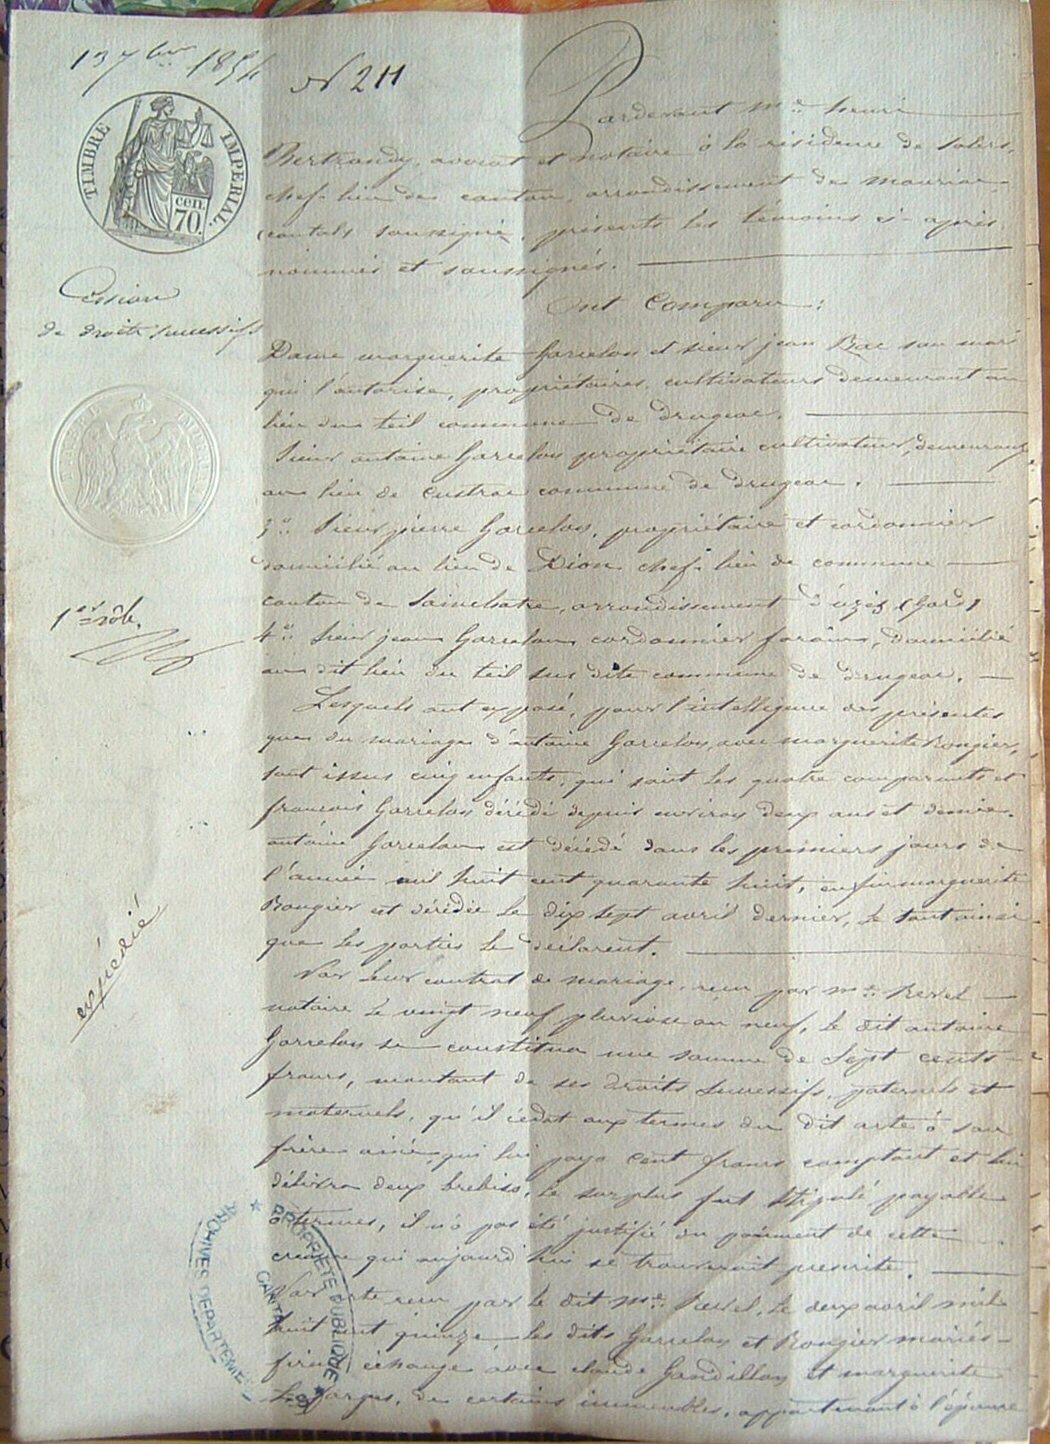 13 7bre 1854
N° 211
TIMBRE IMPERIAL
cen. 70.
Cession
de droits successifs
1er rôle.
expédié
Pardevant me henri
Bertrandy, avocat et notaire à la résidence de salers,
chef-lieu de canton, arrondissement de mauriac
(cantal) soussigné, présents les témoins ci-après
nommés et soussignés.
Ont Comparu:
Dame marguerite Garcelon et sieur jean Bac son mari
qui l'autorise, propriétaires, cultivateurs demeurant au
lieu du teil commune de drugeac.
Sieur antoine Garcelon propriétaire cultivateur, demeurant
au lieu de commune de drugeac.
3°. Sieur pierre Garcelon, propriétaire et cordonnier
domicilié au lieu de Dion chef-lieu de commune
canton de Sainchatre, arrondissement d'uzès (Gard)
4°. Sieur jean Garcelon cordonnier forain, domicilié
au dit lieu du teil sus dite commune de drugeac.
Lesquels ont exposé, pour l'intelligence des présentes
que du mariage d'antoine Garcelon avec marguerite Rougier,
sont issus cinq enfants, qui sont les quatre comparants et
francois Garcelon décédé depuis environ deux ans et demie.
antoine Garcelon est décédé dans les premiers jours de
l'année mil huit cent quarante huit, enfin marguerite
Rougier est décédée le dix sept avril dernier, le tout ainsi
que les parties le déclarent.
Par leur contrat de mariage, reçu par me. Revel
notaire le vingt neuf pluviose an neuf, le dit antoine
Garcelon se constitua une somme de Sept cents
francs, montant de ses droits successifs, paternels et
maternels, qu'il cédat aux termes du dit acte à son
frère ainé, qui lui paya cent francs comptant et lui
délivra deux brebis, le surplus fut stipulé payable
à termes, il n'a pas été justifié du paiement de cette
créance qui aujourd'hui se trouverait prescrite.
Par acte reçu par le dit me. Revel, le deux avril mil
huit cent quinze les dits Garcelon et Rougier mariés
firent échange avec claude Gandillon et marguerite
Lafarges, de certains immeubles, appartenant à l'épouse
ARCHIVES DEPARTEMENTALES
CANTAL
PROPRIETE PUBLIQUE